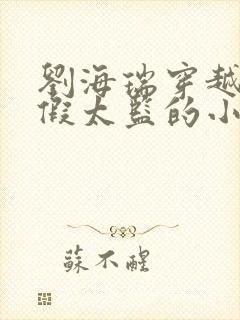 劉海瑞穿越
假太監的小
蘇不醒